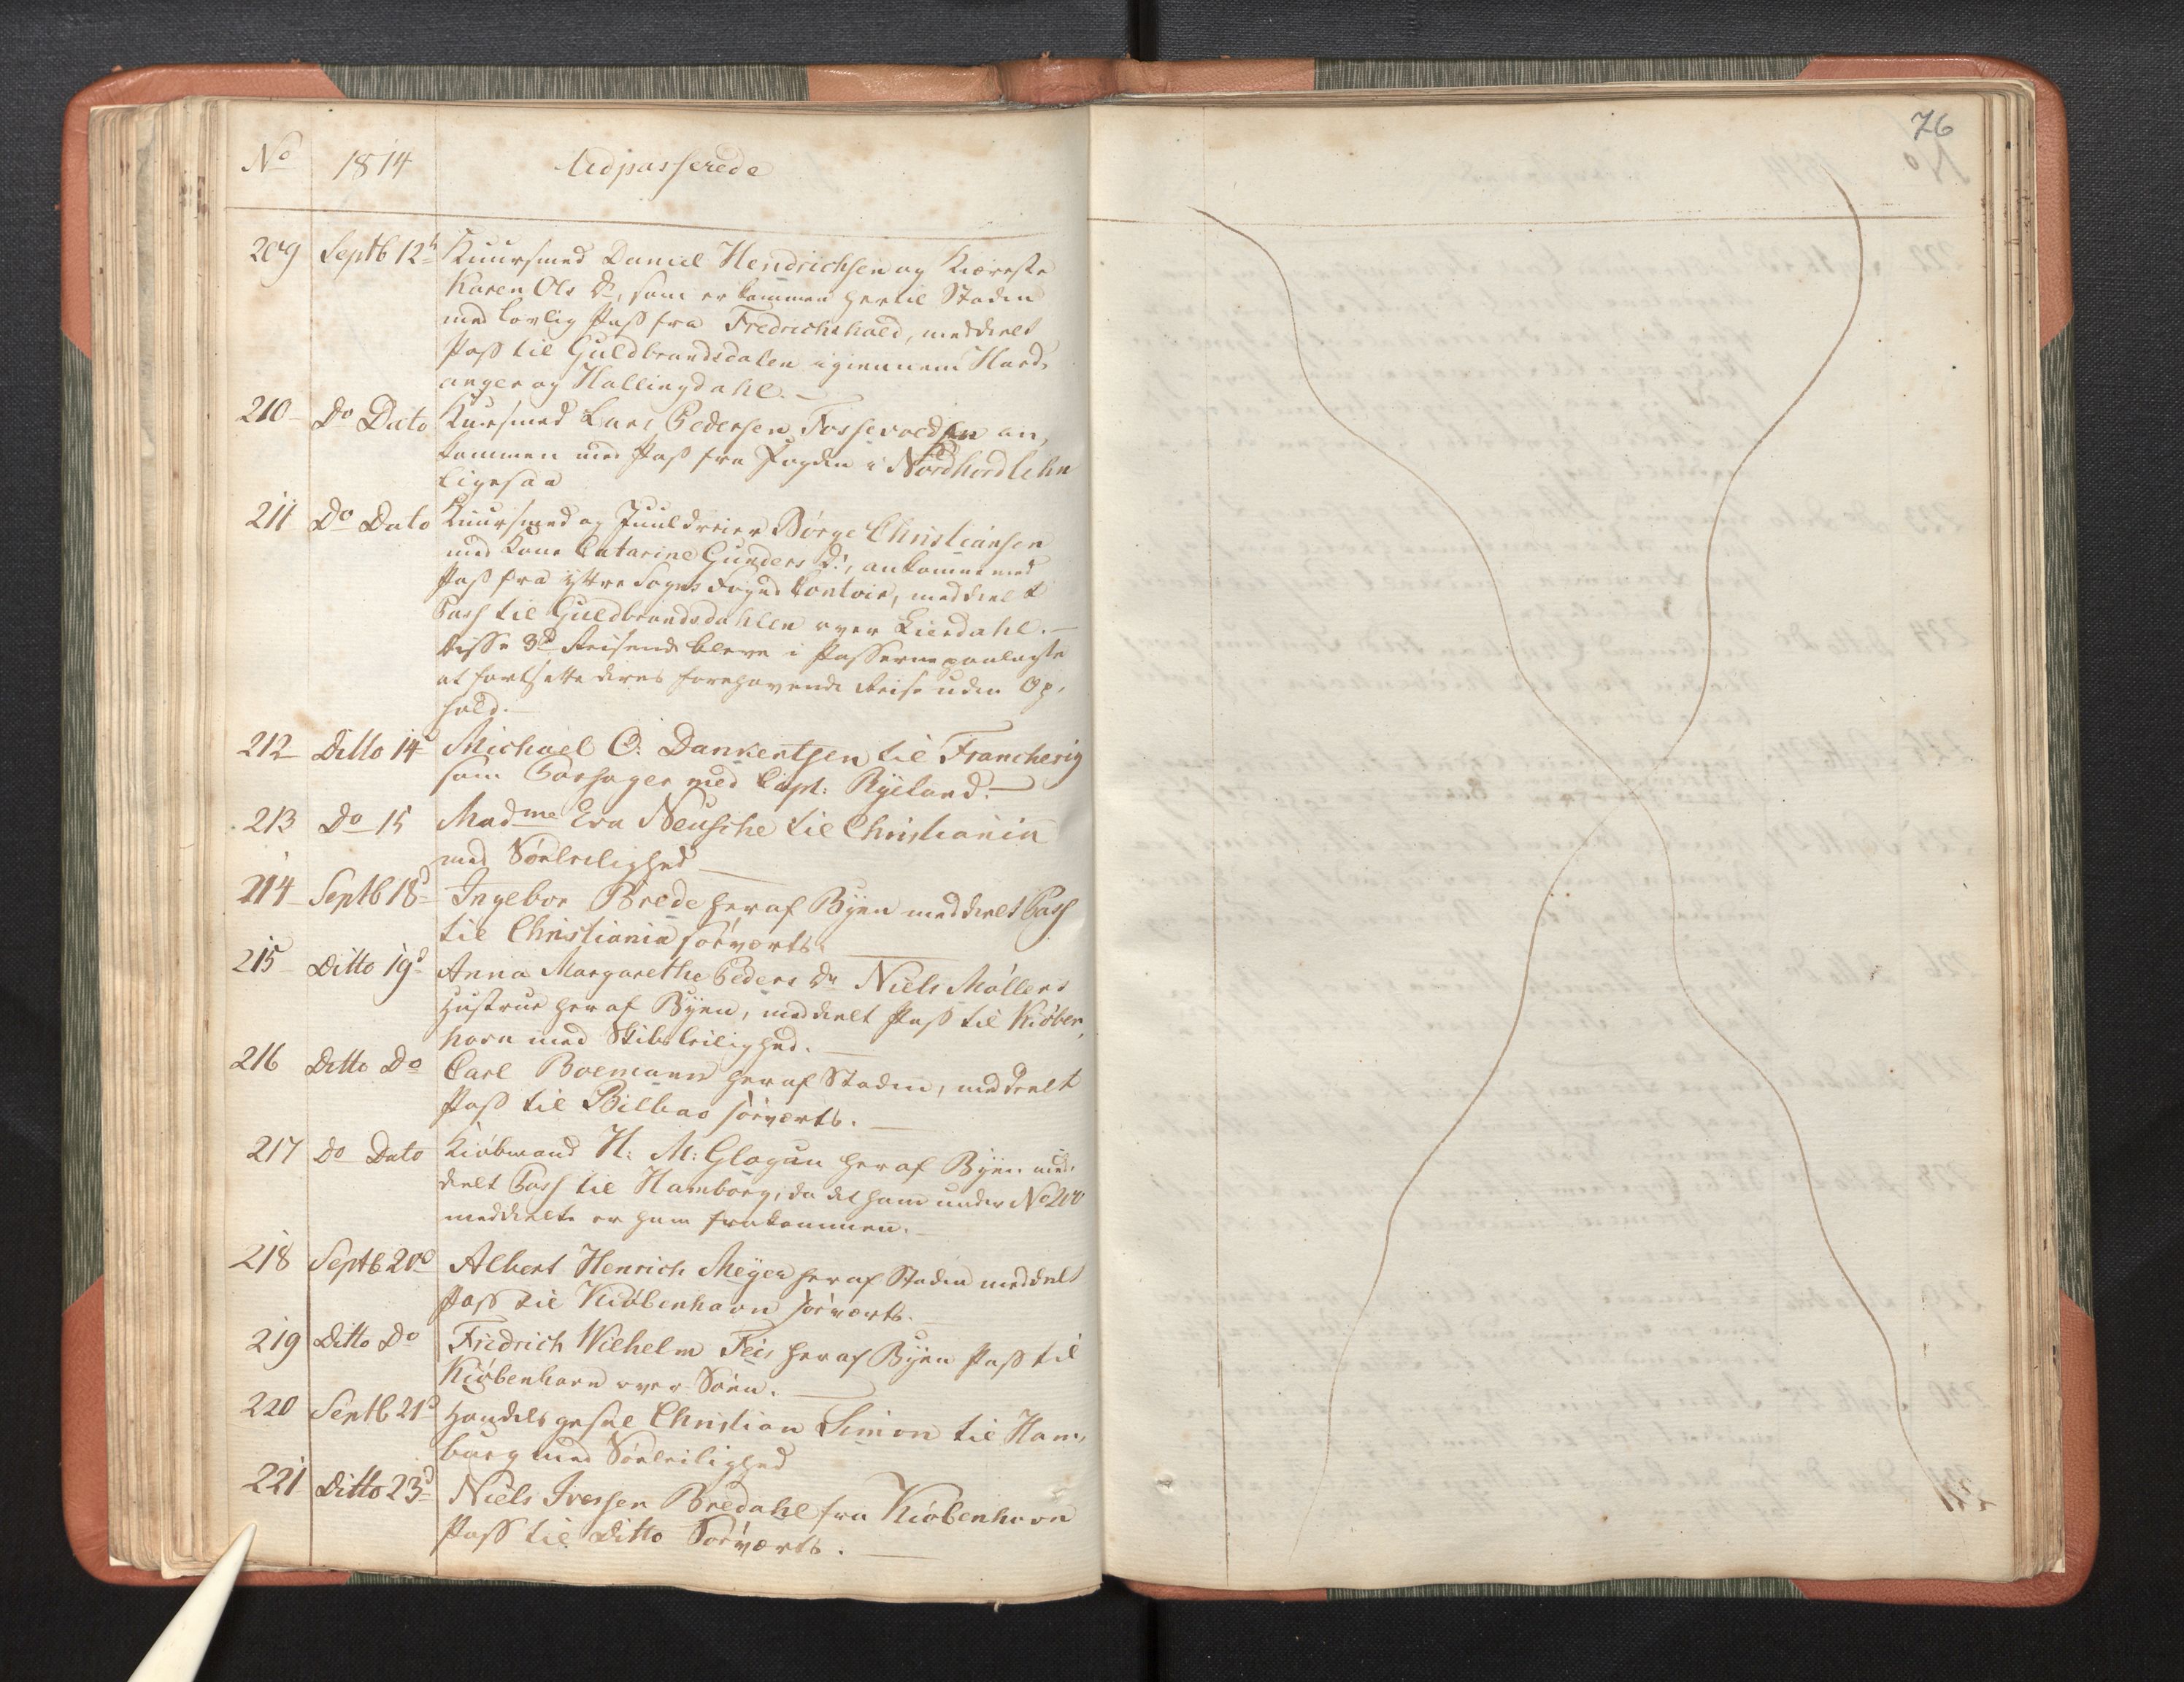 No 1814 Udpasserede
209 Septb 12t Kuursmed Daniel Hendrichsen og Kiæreste
Karen Ols Dr, som er kommen hertil Staden
med lovlig Pass fra Fredrichshald, meddeelt
Pass til Guldbrandsdalen igiennem Hard,
anger og Hallingdahl. —
210 Do Dato Kursmed Lars Pedersen Fossevold an,
kommen med Pass fra Fogden i Nordhordlehn
Ligesaa
211 Do Dato Kuursmed og Juuldreier Børge Christiansen
med Kone Catarine Gunders Dr, ankomne med
Pass fra yttre Sogns Foged Contoir, meddeelt
Pass til Guldbrandsdahlen over Lierdahl. —
Disse 3de Reisende bleve i Passerne paalagte
at fortsætte deres forehavende Reise uden Op,
hold. —
212 Ditto 14 Michael C: Dankertsen til
som Passager med Capt: Ryeland. —
213 Do 15 Madme Eva Neusche til Christiania
med Søeleilighed —
214 Septb 18d Ingebor Brede her af Byen meddeelt Pass
til Christiania søeværts. —
215 Ditto 19d Anna Margarethe Peders Dr Niels Møllers
Hustrue her af Byen, meddeelt Pass til Kiøben,
havn med Skibsleilighed. —
216 Ditto Do Carl Boemann her af Staden, meddeelt
Pass til Bilbao søeværts. —
217 Do Dato Kiøbmand H: M: Glogau her af Byen med,
deelt Pass til Hamborg, da det ham under No 200
meddeelte er ham frakommen. —
218 Septb 20d Albert Henrich Meyer her af Staden meddeelt
Pass til Kiøbenhavn søeværts. —
219 Ditto Do Fridrich Wilhelm Feis her af Byen Pass til
Kiøbenhavn over Søen. —
220 Septb 21d Handelsgesel Christian Simon til Ham,
burg med Søeleilighed
221 Ditto 23d Niels Iversen Bredahl fra Kiøbenhavn
Pass til Ditto Søeværts. —
76